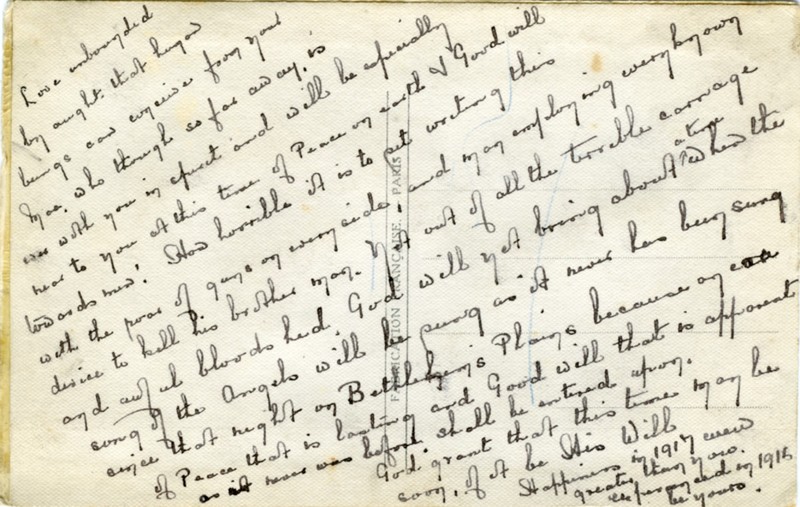 Love unbounded
by aught that human
beings can conceive from your
Mac, who though so far away, is
ever with you in spirit and will be especially
near to you at this time of Peace on earth & Good will
towards men! How horrible it is to sit writing this
with the roar of guns on every side, and man employing every known
device to kill his brother man. Yet out of all the terrible carnage
and awful bloodshed God will yet bring about a time when the
song of the Angels will be sung as it never has been sung
since that night on Bethlehem's Plains because an era
of Peace that is lasting and Good will that is apparent
as it never was before shall be entered upon.
God grant that this time may be
soon, if it be His Will
Happiness in 1917 even
greater than you
experienced in 1916
be yours.
FABRICATION FRANÇAISE. PARIS